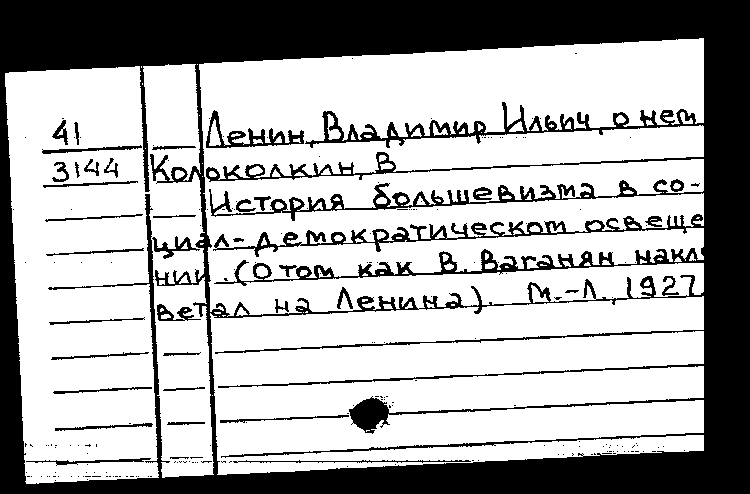 41 Ленин, Владимир Ильич, о нем
3144 Колоколкин, В
История большевизма в со-
циал-демократическом освеще
нии. (О том как В. Ваганян накл
ветал на Ленина). М.-Л., 1927